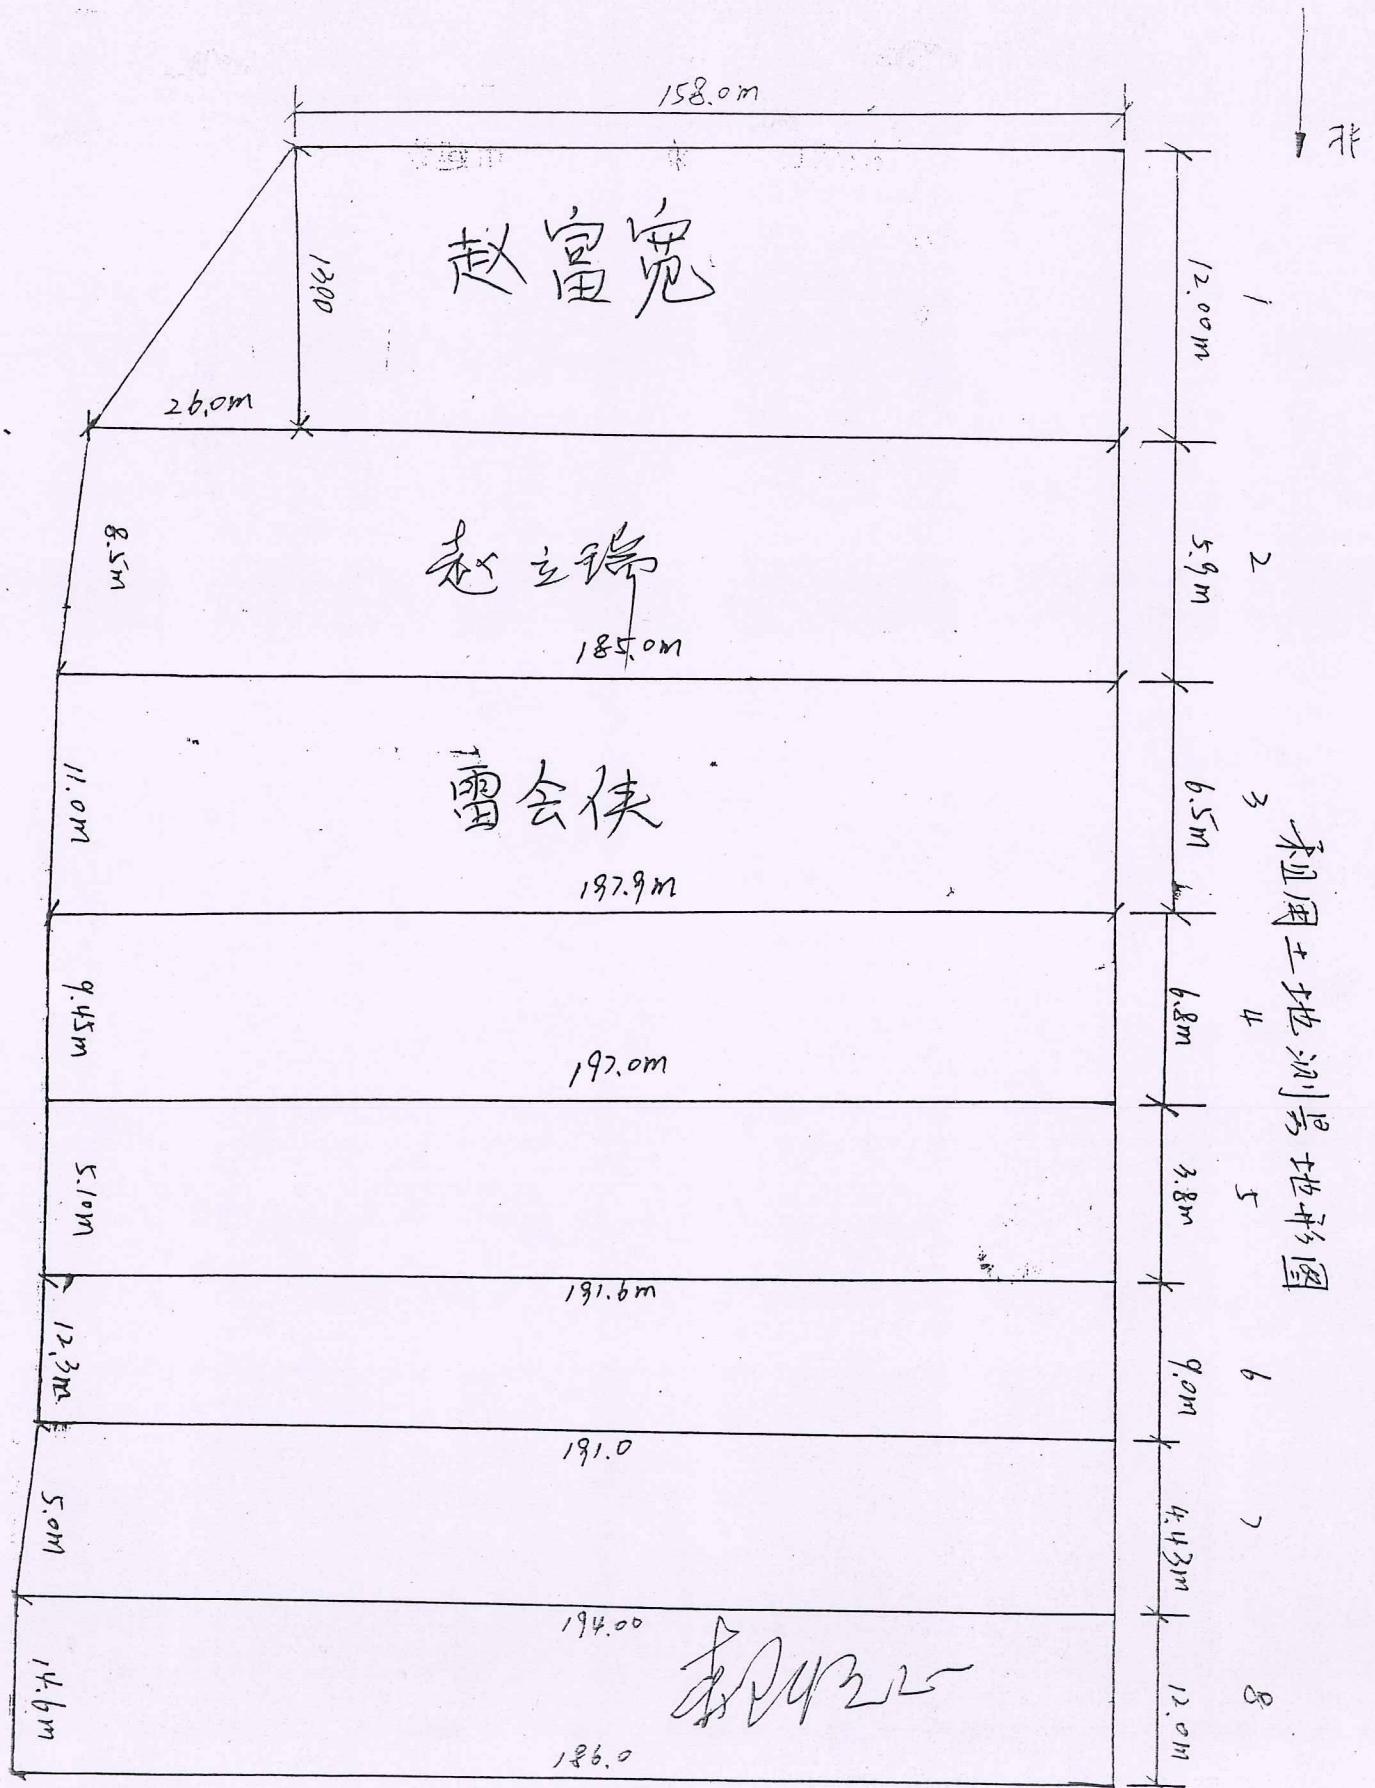 158.0m
北
赵富宽
13.00
12.00m
1
26.0m
8.5m
赵立瑞
185.0m
5.9m
2
11.0m
雷会侠
197.9m
6.5m
3
租用土地测量地形图
9.45m
197.0m
6.8m
4
5.10m
191.6m
3.8m
5
12.3m
191.0
9.0m
6
5.0m
194.00
4.43m
7
14.6m
186.0
12.0m
8